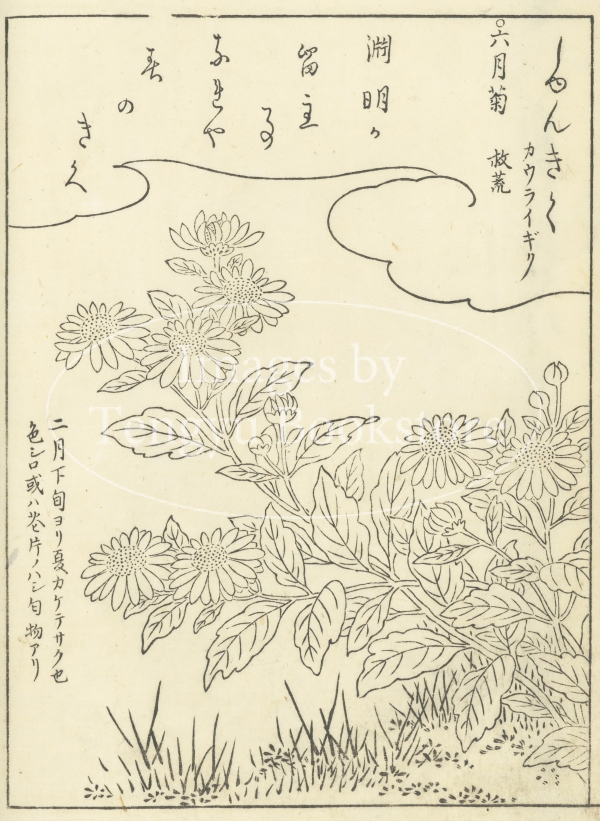 しゆんきく
カウライギク
○六月菊 救荒
淵明か
留主
る
なれや
春
の
きく
二月下旬ヨリ夏カケテサク也
色シロ或ハ花片ノハシ匂物アリ
Images by
Tengyu Bookstore